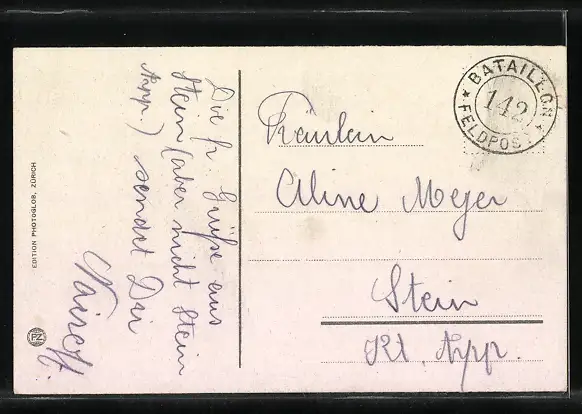 Die hr. Grüße aus
Stein (aber nicht Stein
App.) sendet Dir
EDITION PHOTOGLOB, ZÜRICH
PZ
BATAILLON
142
FELDPOST
Fräulein
Aline Meyer
Stein
Kt. App.